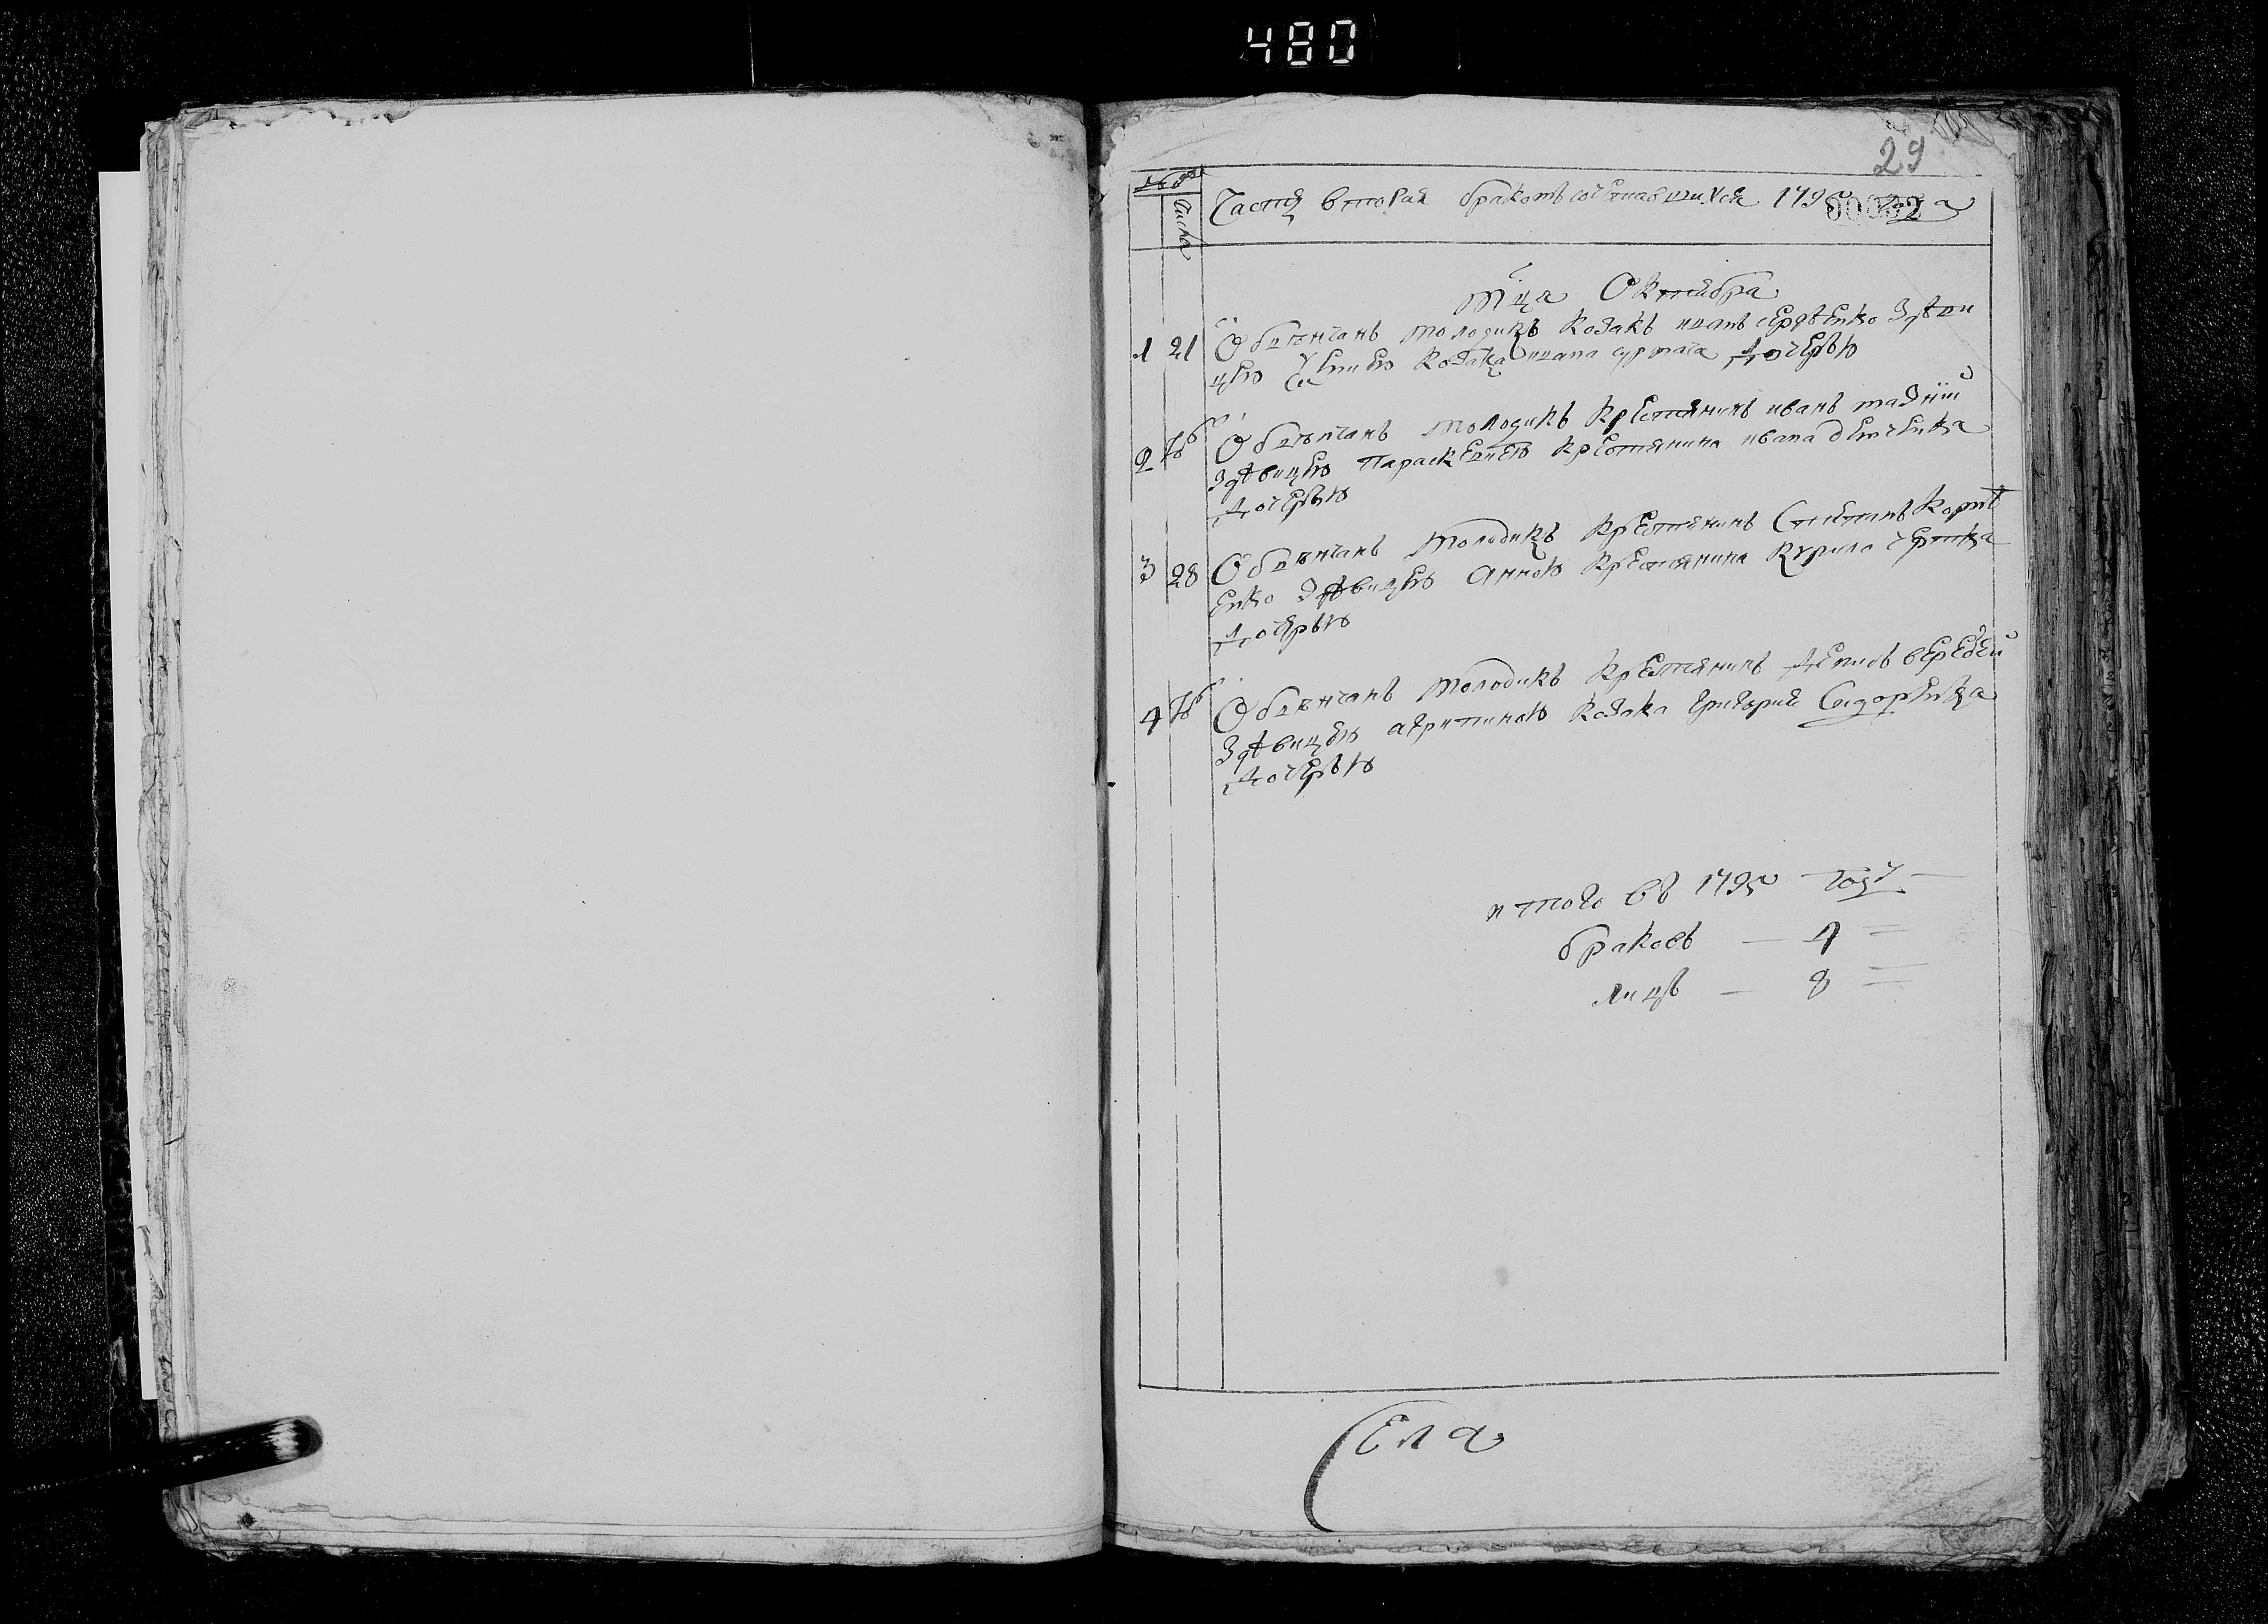 480
29
Числа
Часть вторая бракомъ сочетавшихся 1795 года
00032
мца Октября
1 21 Обвѣнчанъ молодикъ козакъ иванъ сердѣенко здѣви
цею козака ивана дочерью
2 Обвѣнчанъ молодикъ крестянинъ иванъ
здѣвицею Параскевиею крестянина ивана демченка
дочерью
3 28 Обвѣнчанъ молодикъ крестянинъ Стефанъ Корнѣ
енко здѣвицею Анною крестянина Курила
дочерью
4 Обвѣнчанъ молодикъ крестянинъ Денисъ
здѣвицею агрипиною козака григория Сидоренка
дочерью
итого въ 1795 году
браковъ — 4
лицъ — 8
Села